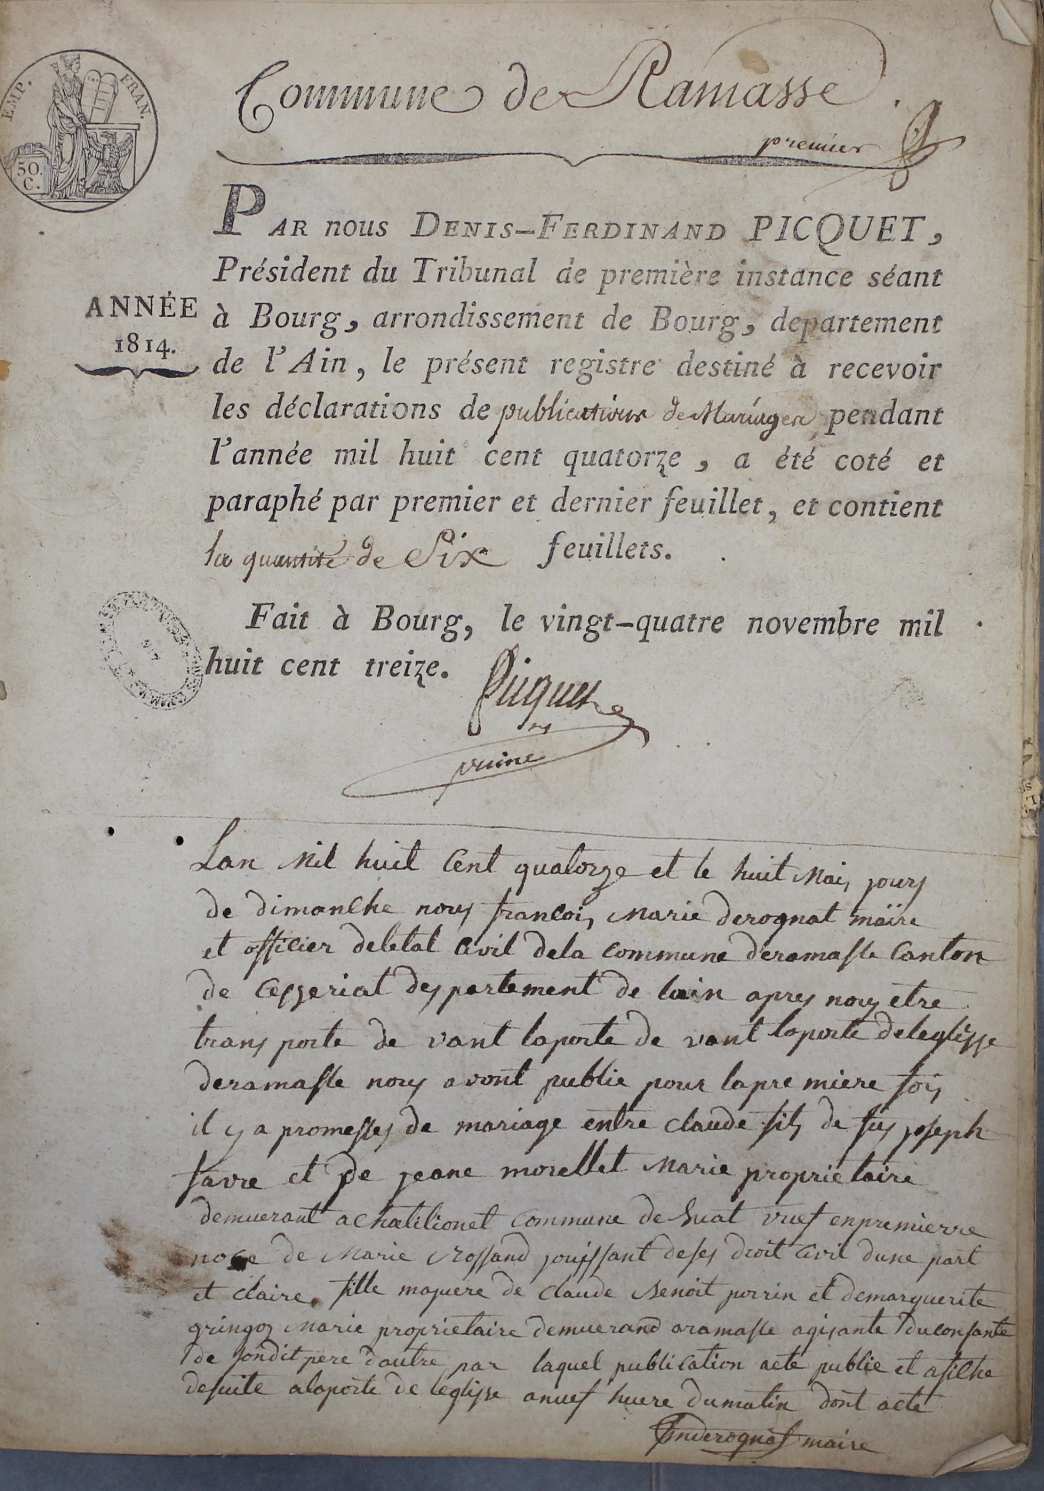 EMP. FRAN.
50
C.
Commune de Ramasse.
premier
PAR nous DENIS-FERDINAND PICQUET,
Président du Tribunal de première instance séant
à Bourg, arrondissement de Bourg, departement
de l'Ain, le présent registre destiné à recevoir
les déclarations de publications de Mariages pendant
l'année mil huit cent quatorze, a été coté et
paraphé par premier et dernier feuillet, et contient
la quantité de Six feuillets.
ANNÉE
1814.
Fait à Bourg, le vingt-quatre novembre mil
huit cent treize.
Picquet
Lan Mil huit Cent quatorze et le huit Mai jours
de dimanche nous francois Marie derognat maire
et officier deletat Civil dela commune deramasse Canton
de Cesseriat despartement de lain apres nous etre
trans porte de vant laporte de vant laporte deleglisse
deramasse nous avont publie pour lapre miere fois
il y a promesses de mariage entre claude fils de fus joseph
favre et de jeane morellet Marie proprietaire
demuerant a chatilionet commune de Suat vuef enpremierre
noce de Marie Rossand jouissant deses droit Civil dune part
et claire fille majuere de claude Benoit perrin et demarguerite
gringoz Marie proprietaire demuerand aramasse agisante duconsante
de sondit pere dautre par laquel publication acte publie et afiche
desuite alaporte de leglisse a nuef huere dumatin dont acte
derognat maire